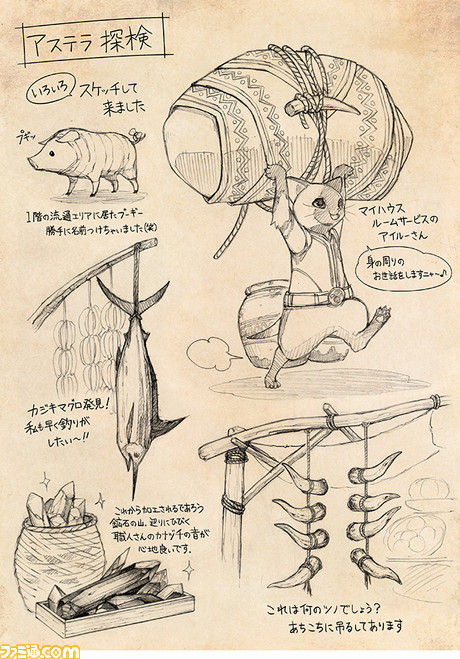 アステラ 探検
いろいろ スケッチして
来ました
プギッ
1階の流通エリアに居たプーギー
勝手に名前つけちゃいました(笑)
マイハウス
ルームサービスの
アイルーさん
身の周りの
お世話をしますニャ〜♪
カジキマグロ発見!
私も早く釣りが
したい〜!!
これから加工されるであろう
鉱石の山。辺りにひびく
職人さんのカナヅチの音が
心地良いです。
これは何のツノでしょう?
あちこちに吊るしてあります
ファミ通.com